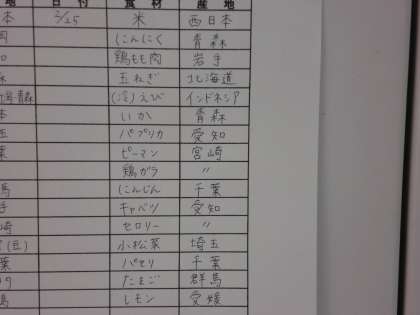 地 日付 食材 産地
本 2/25 米 西日本
岡 にんにく 青森
鶏もも肉 岩手
玉ねぎ 北海道
青森 (冷)えび インドネシア
本 いか 青森
玉 パプリカ 愛知
葉 ピーマン 宮崎
鶏ガラ 〃
馬 にんじん 千葉
手 キャベツ 愛知
崎 セロリー 〃
(豆) 小松菜 埼玉
葉 パセリ 千葉
たまご 群馬
島 レモン 愛媛